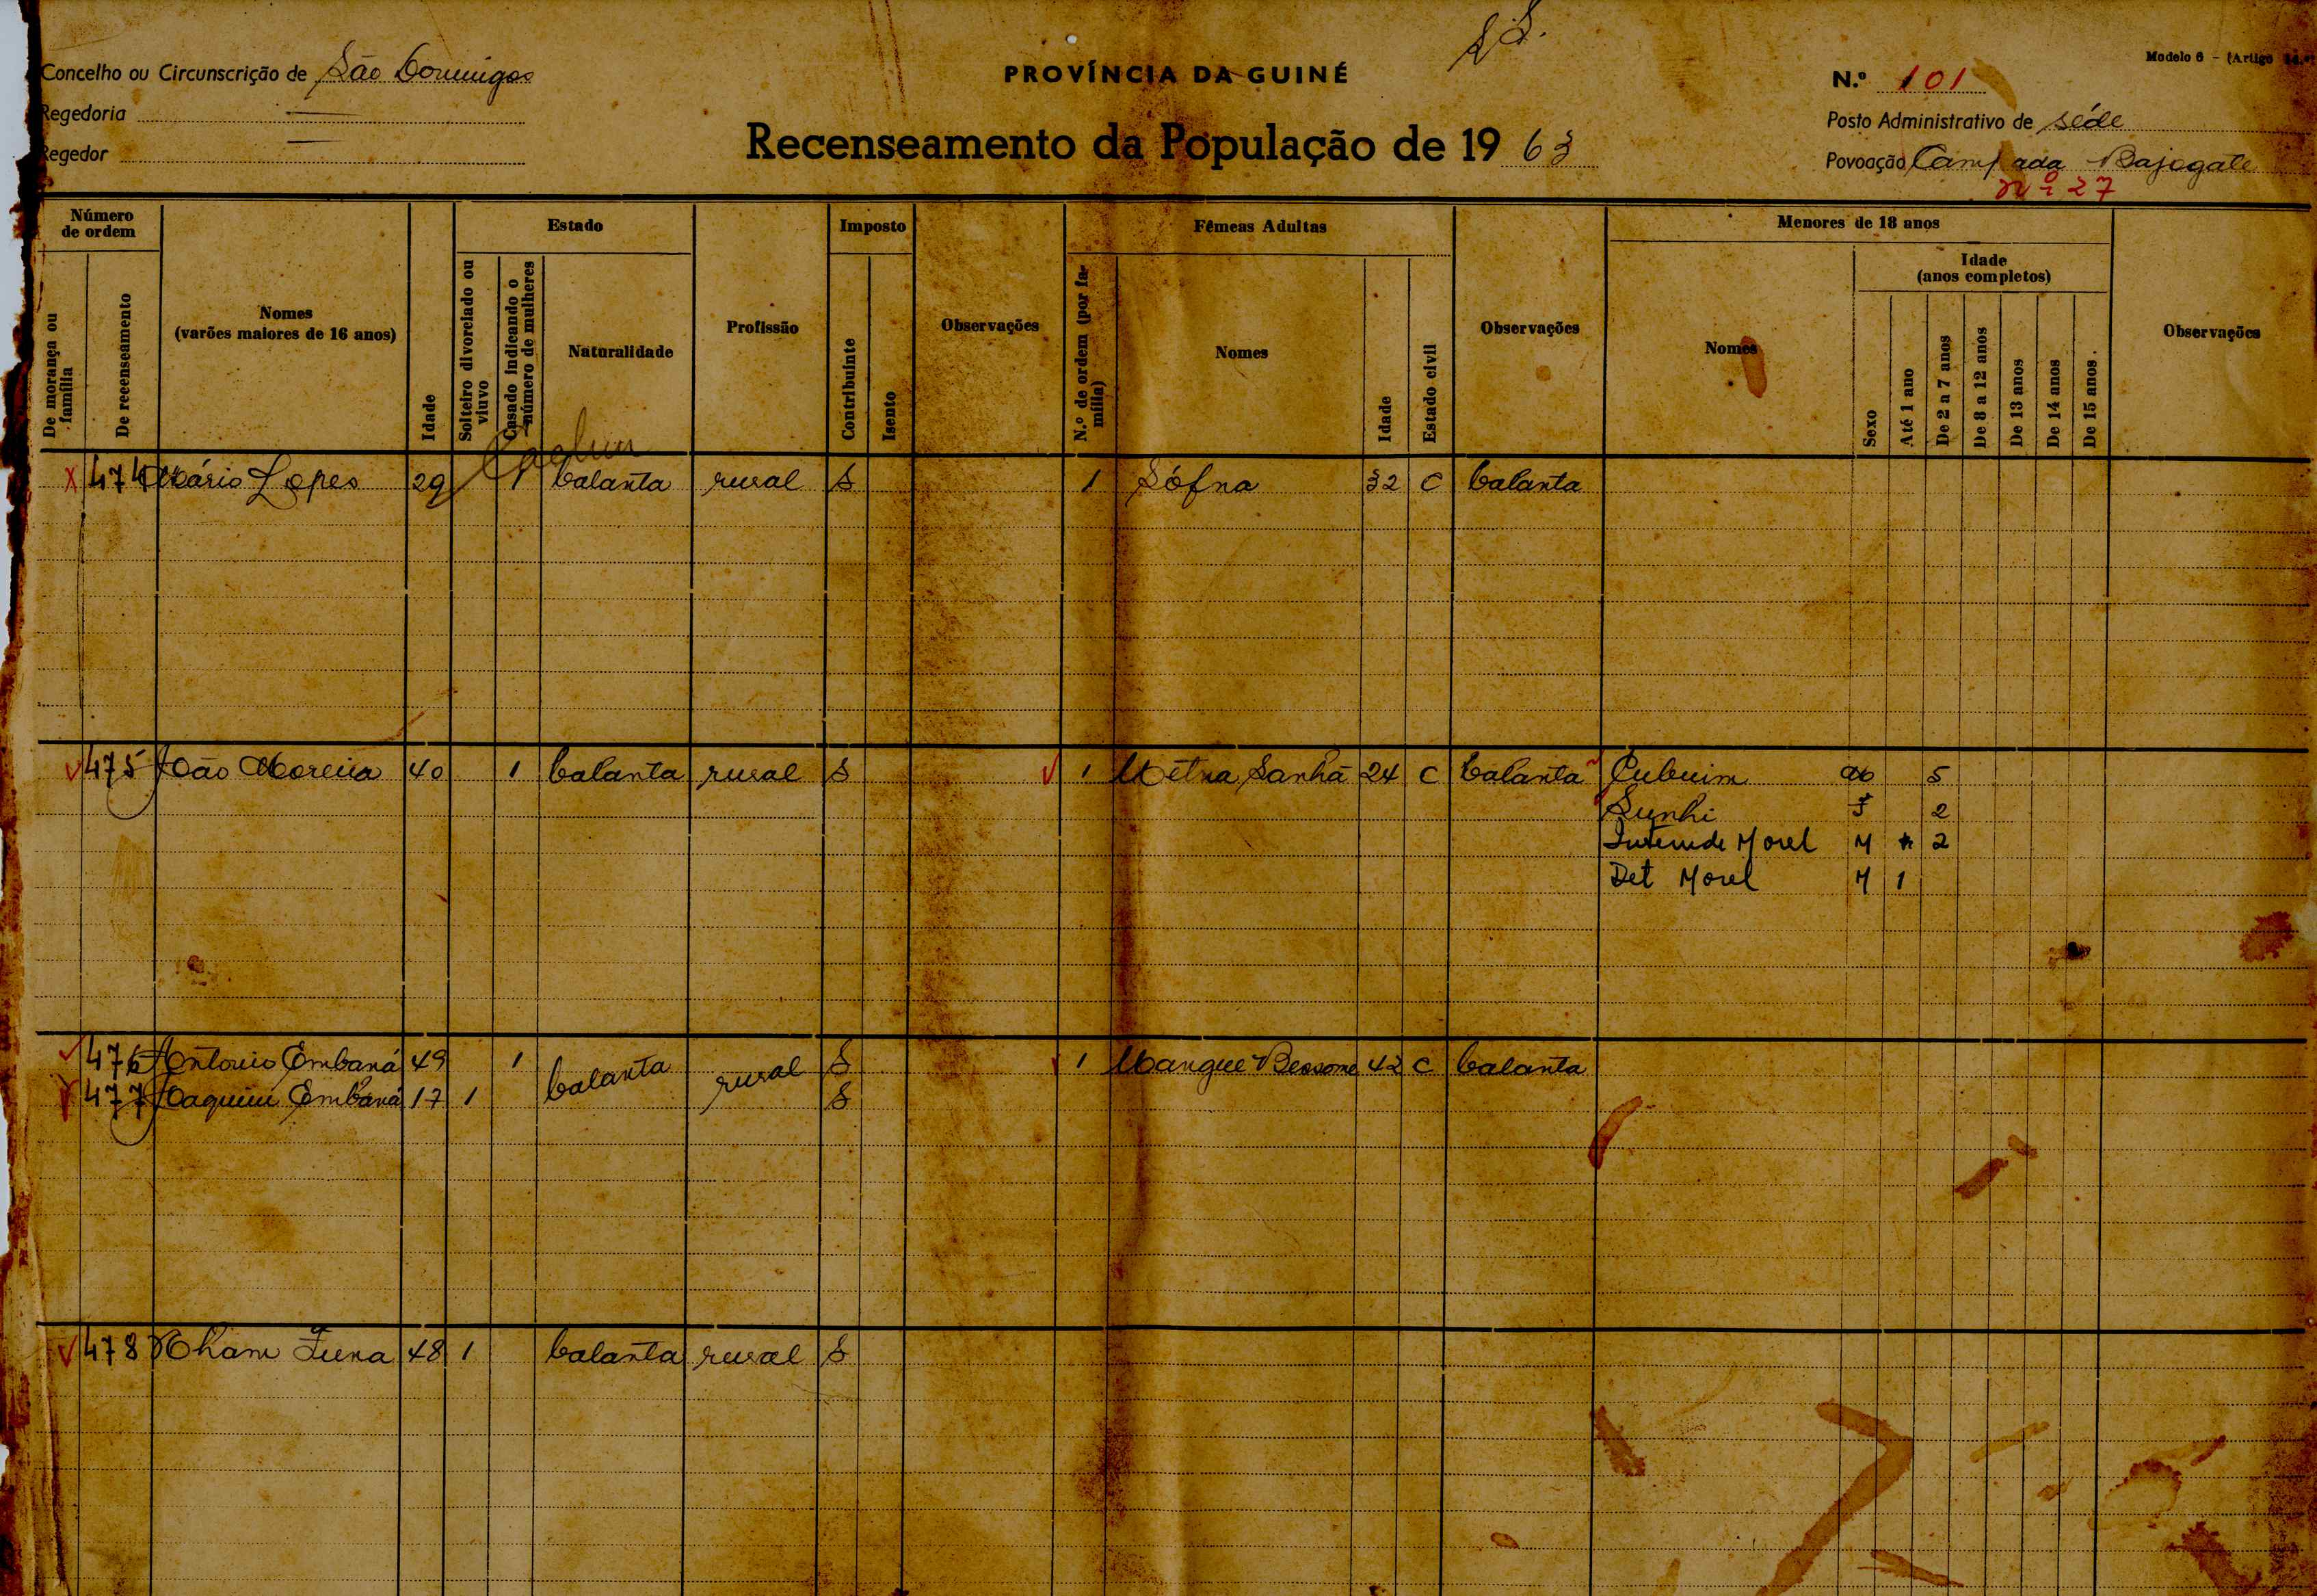 S.S.
Modelo 6 - (Artigo
Concelho ou Circunscrição de São Domingos
PROVÍNCIA DA GUINÉ
N.º 101
Regedoria —
Posto Administrativo de séde
Regedor —
Recenseamento da População de 19 63
Povoação Campada Bajogate
nº 27
Número de ordem
Estado
Imposto
Fêmeas Adultas
Menores de 18 anos
De morança ou família
De recenseamento
Nomes (varões maiores de 16 anos)
Idade
Solteiro divorciado ou viuvo
Casado indicando o número de mulheres
Naturalidade
Profissão
Contribuinte
Isento
Observações
N.º de ordem (por família)
Nomes
Idade
Estado civil
Observações
Nomes
Sexo
Idade (anos completos)
Até 1 ano
De 2 a 7 anos
De 8 a 12 anos
De 13 anos
De 14 anos
De 15 anos
Observações
X 474 Mário Lopes 29 1 balanta rural S 1 Sófna 32 C balanta
✓ 475 João Moreira 40 1 balanta rural S ✓ 1 Métna Sanhá 24 C balanta Cubuim M 5
Sunhi F 2
Morel M 2
Det Morel M 1
✓ 476 António Embaná 49 1 balanta rural S 1 Mangue Bessone 42 C balanta
477 Joaquim Embaná 17 1 S
✓ 478 Nham Funa 48 1 balanta rural S